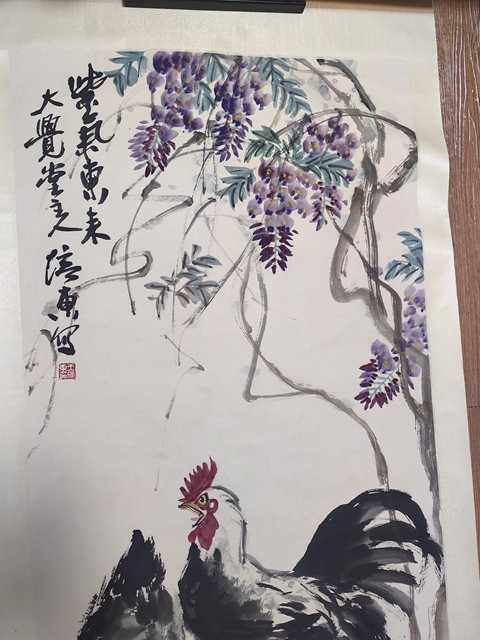 紫气东来
大觉堂主人培东写